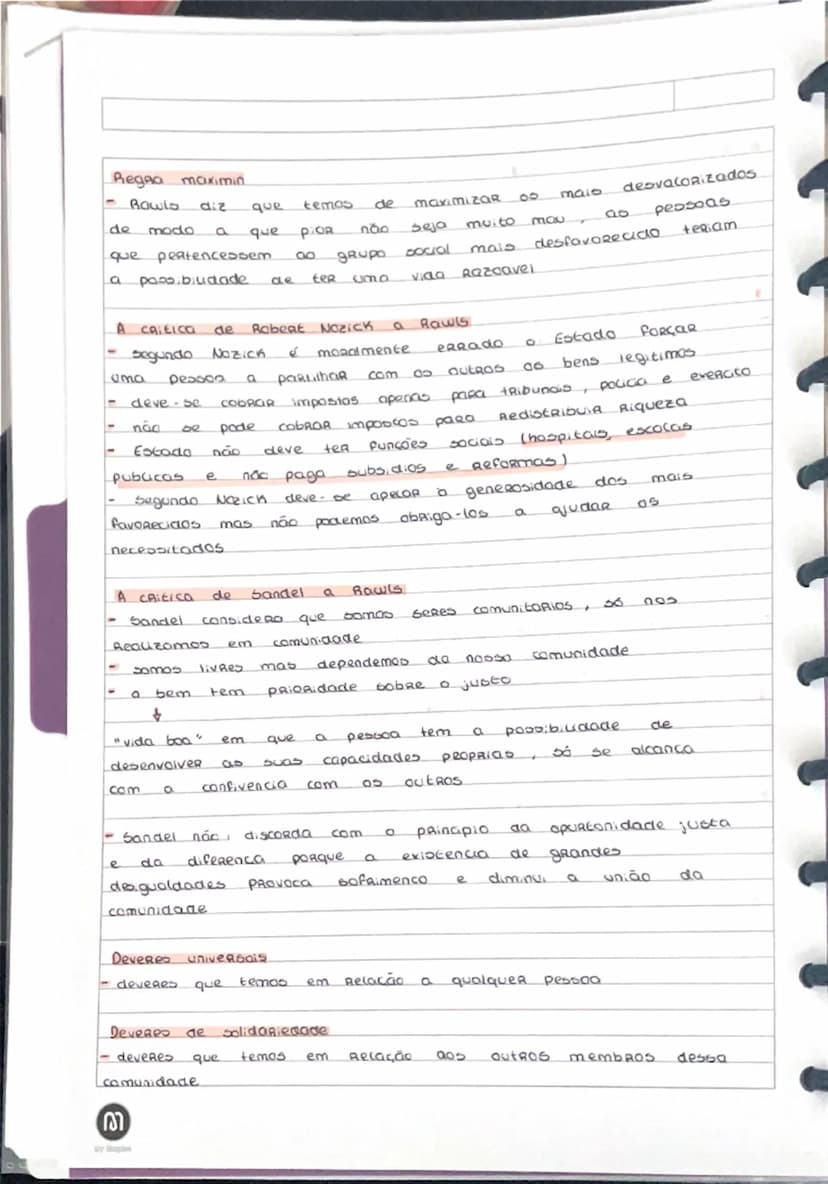 Regra maximin
- Rawls diz que temos de maximizar os mais desvalorizados
de modo a que pior não seja muito mau, as pessoas
que pertencessem ao grupo social mais desfavorecido teriam
a possibilidade de ter uma vida razoavel
A critica de Robert Nozick a Rawls
- segundo Nozick é moralmente errado o Estado forçar
uma pessoa a partilhar com os outros os bens legitimos
- deve-se cobrar impostos apenas para tribunais, policia e exercito
- não se pode cobrar impostos para redistribuir riqueza
- Estado não deve ter funções sociais (hospitais, escolas
publicas e não paga subsidios e reformas)
- segundo Nozick deve-se apelar à generosidade dos mais
favorecidos mas não podemos obriga-los a ajudar os
necessitados
A critica de Sandel a Rawls
- Sandel considera que somos seres comunitarios, só nos
realizamos em comunidade
- somos livres mas dependemos da nossa comunidade
- o bem tem prioridade sobre o justo
↓
"vida boa" em que a pessoa tem a possibilidade de
desenvolver as suas capacidades proprias, só se alcança
com a confivencia com os outros
- Sandel não, discorda com o principio da opurtonidade justa
e da diferença porque a existencia de grandes
desigualdades provoca sofrimento e diminui a união da
comunidade
Deveres universais
- deveres que temos em relação a qualquer pessoa
Deveres de solidariedade
- deveres que temos em relação aos outros membros dessa
comunidade